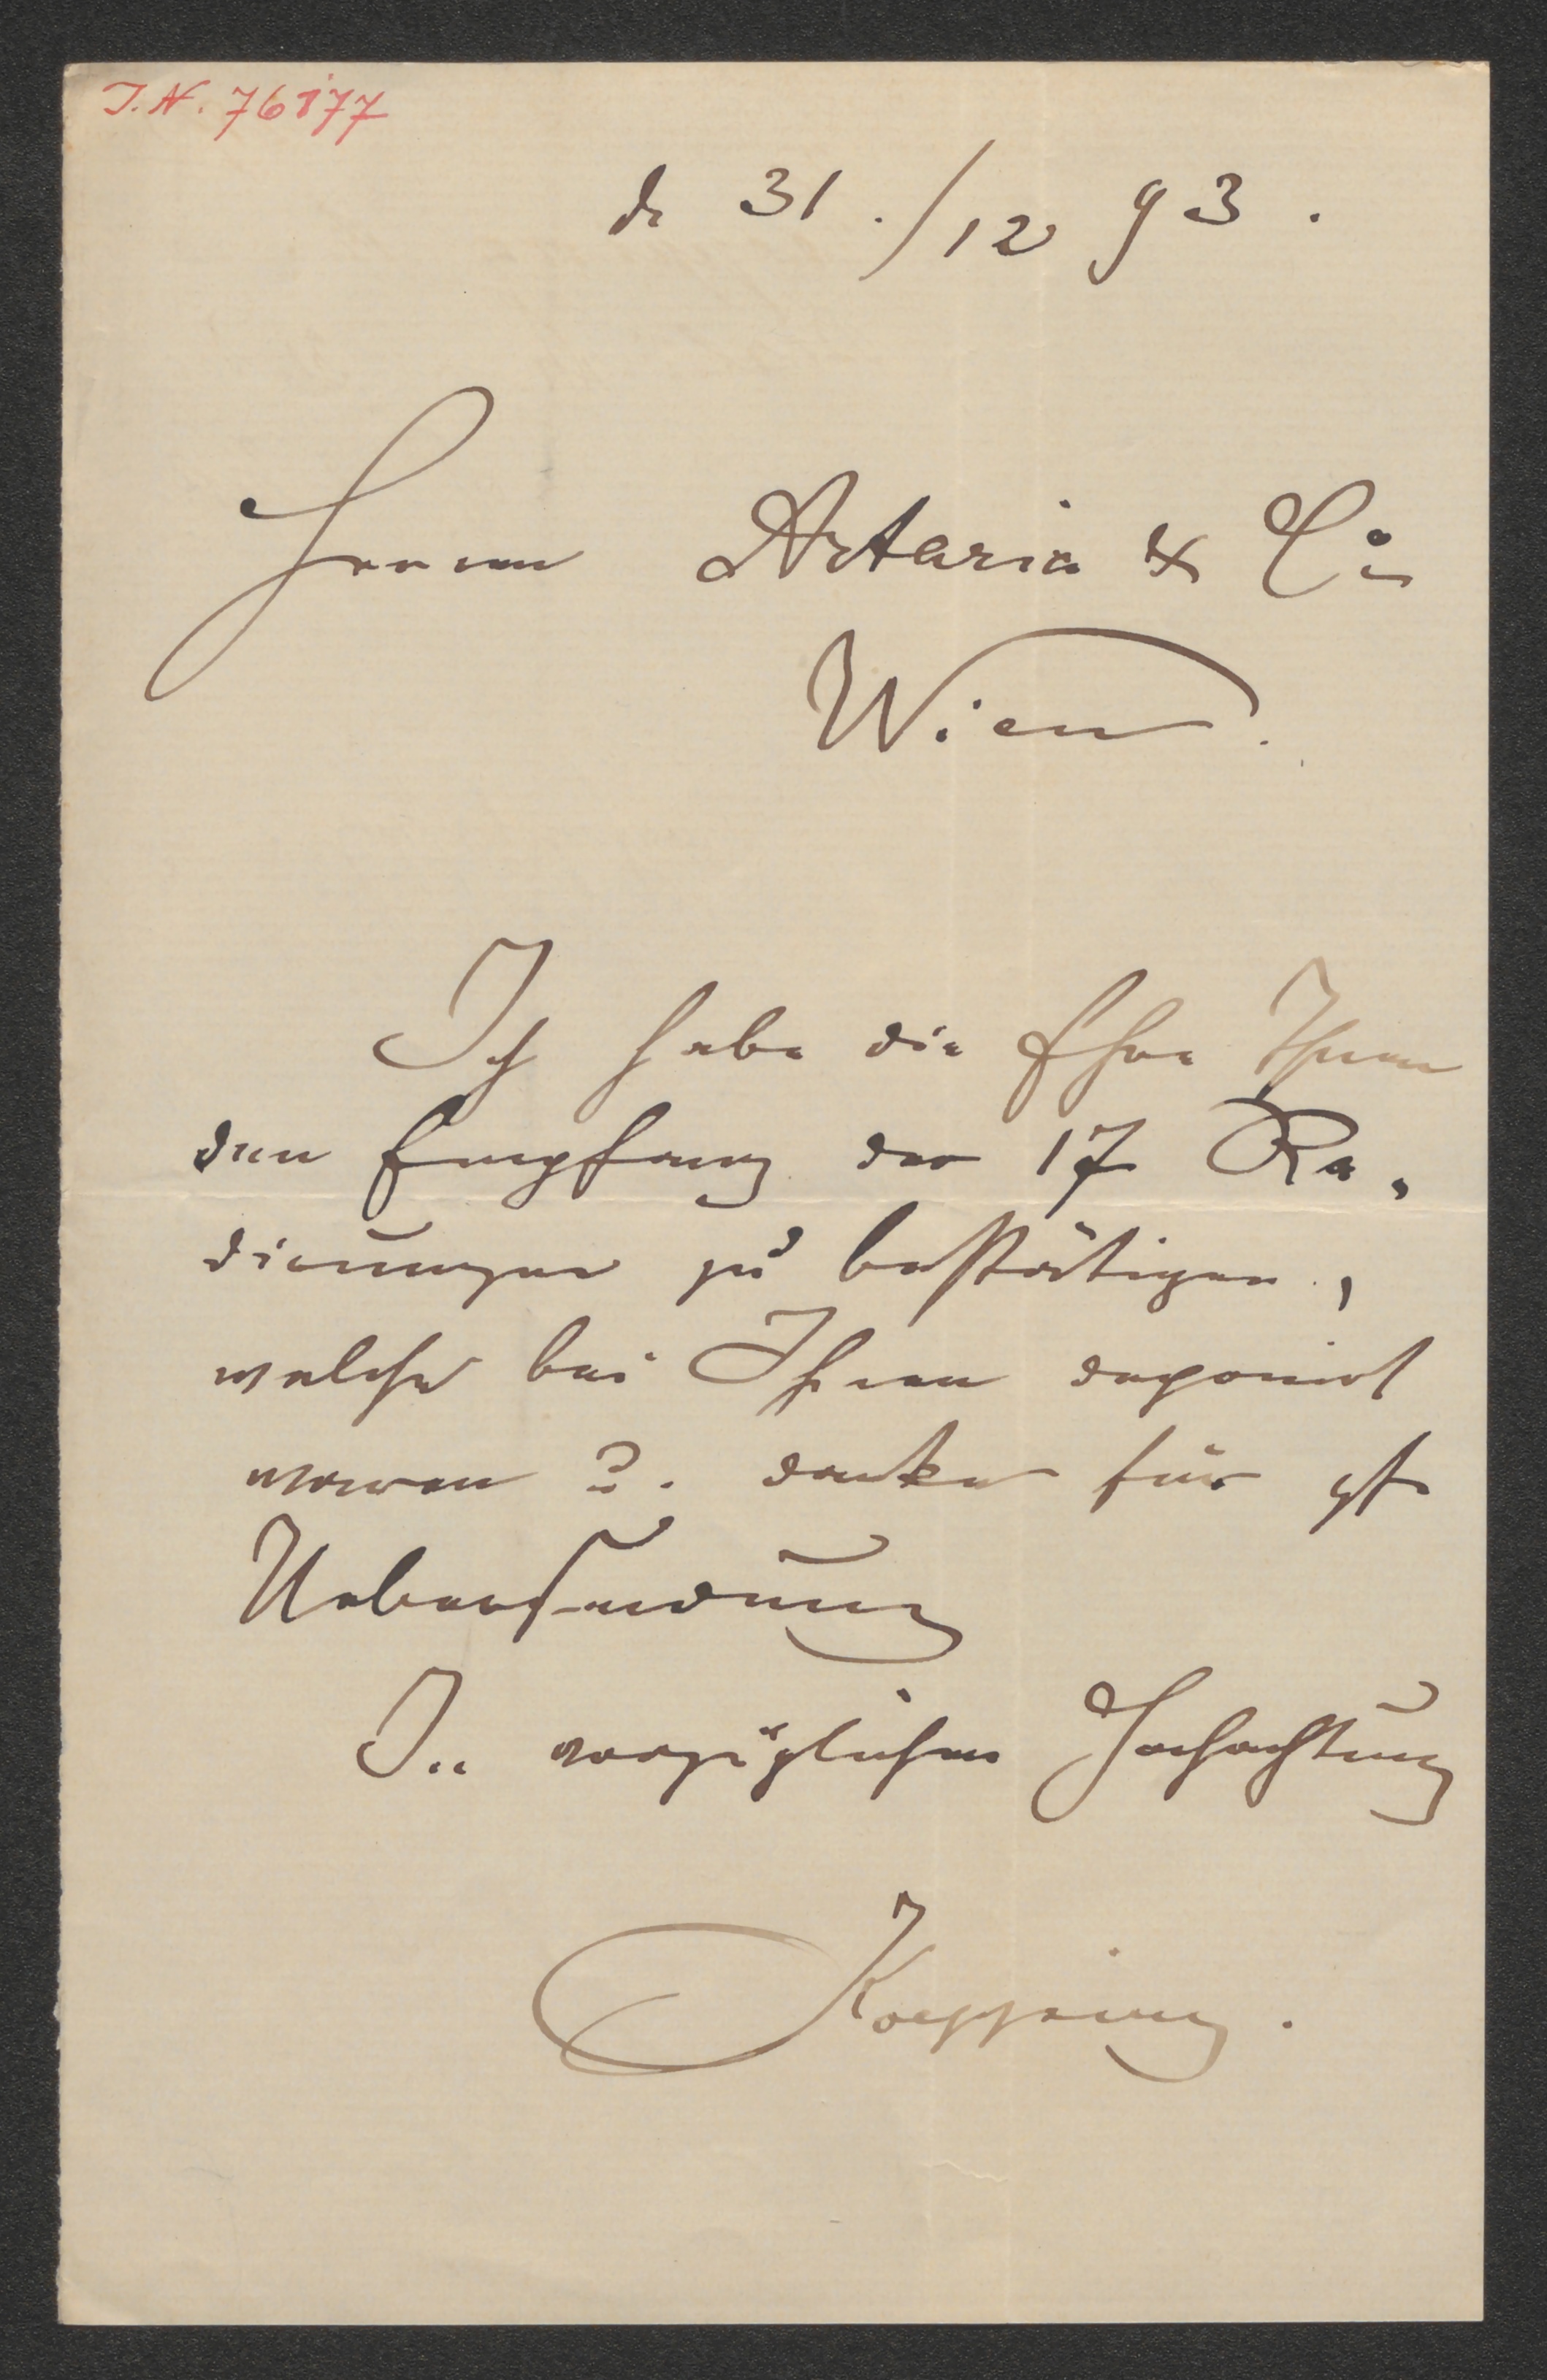 I.N. 76177
d. 31./12 93.
Herren Artaria & Co
Wien.
Ich habe die Ehre Ihnen
den Empfang der 17 Ra-
dirungen zu bestätigen,
welche bei Ihnen deponirt
waren u. danke für gf.
Uebersendung
In vorzüglicher Hochachtung
Koepping.